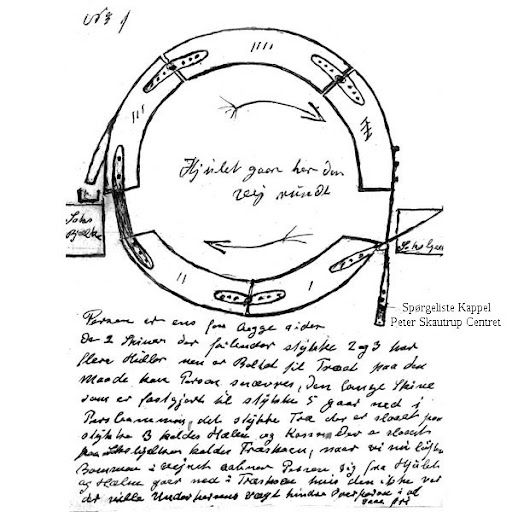 Hjulet gaar her den
vej rundt
Bjælke
Spørgeliste Kappel
Peter Skautrup Centret
Persen er ens fra begge sider
De 2 Skiner der forbinder stykke 2 og 3 har
flere Huller men er Boltet til Træet paa den
Maade kan Persen snævres, den lange Skine
som er fastgjort til stykke 5 gaar ned i
Persbommen, det stykke Træ der er slaaet paa
stykke 3 kaldes Hælen og Kassen der er slaaet
paa kaldes Træskoen, naar vi nu løfter
Bommen i vejret aabner Persen sig fra Hjulet
og Hælen gaar ned i Træskoen hvis den ikke var
der ville Underpersens vægt hindre Overpersen i at
fri